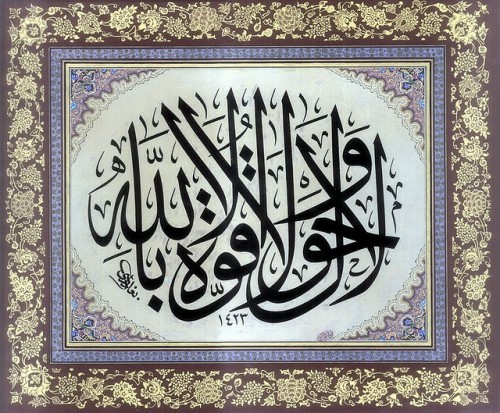 لا حول ولا قوة إلا بالله
١٤٢٣